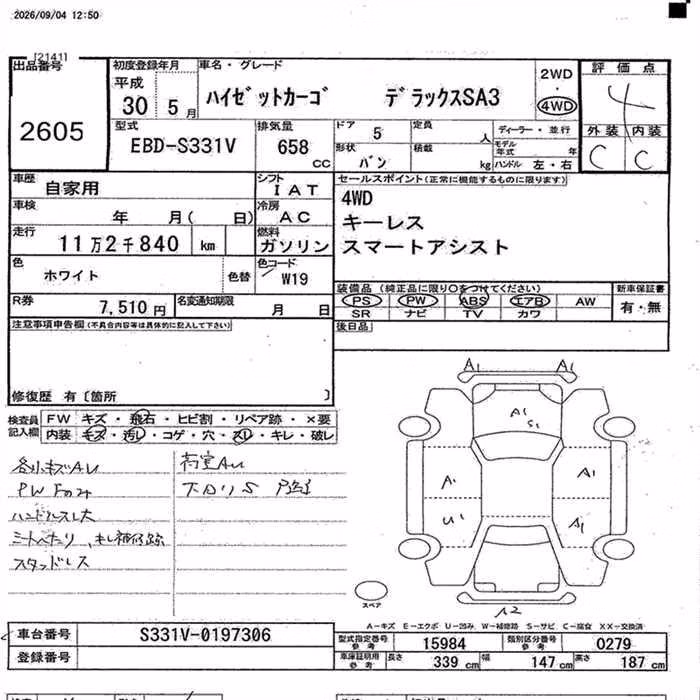 2026/09/04 12:50
[2141]
出品番号
2605
初度登録年月
平成
30 5 月
車名・グレード
ハイゼットカーゴ デラックスSA3
2WD
・
4WD
評価点
4
外装 内装
C C
型式
EBD-S331V
排気量
658
CC
ドア 5
定員 人
ディーラー・並行
モデル年式 年
形状 バン
積載 kg
ハンドル 左・右
車歴
自家用
シフト
IAT
車検
年 月( 日)
冷房
AC
走行
11万2千840 km
燃料
ガソリン
色
ホワイト
色替
色コード
W19
R券
7,510 円
名変通知期限
月 日
セールスポイント(正常に機能するものに限ります)
4WD
キーレス
スマートアシスト
装備品 (純正品に限り○をつけてください)
PS PW ABS エアB AW
SR ナビ TV カワ
新車保証書
有・無
後日品
注意事項申告欄(不具合内容等は具体的に記入して下さい)
修復歴 有〔箇所 〕
検査員
記入欄
FW キズ・飛石・ヒビ割・リペア跡・×要
内装 キズ・汚レ・コゲ・穴・スレ・キレ・破レ
各小キズAU
荷室AU
PW Fのみ
下回りS
ハンドルスレ大
シートヘタリ、キレ補修跡
スタッドレス
A1 A1
A1
S1
A1 A1
U1 A1
A2
スペア
A-キズ E-エクボ U-凹み W-補修跡 S-サビ C-腐食 XX-交換済
車台番号
S331V-0197306
登録番号
型式指定番号
参考
15984
類別区分番号
参考
0279
車庫証明用
参考
長さ 339 cm 幅 147 cm 高さ 187 cm